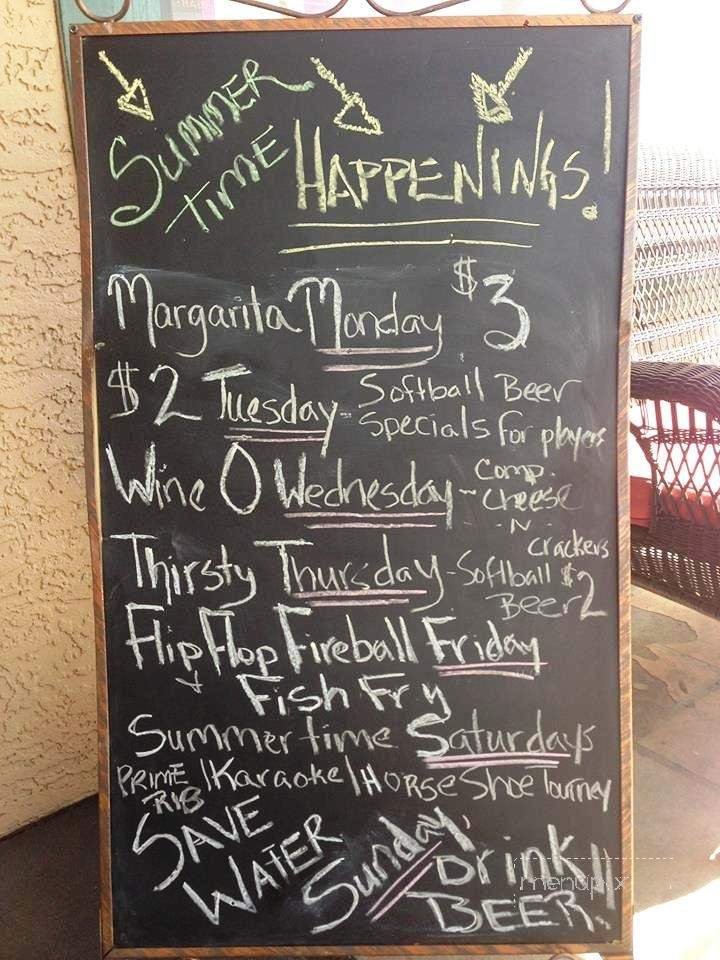 SUMMER
TIME
HAPPENINGS!
Margarita Monday $3
$2 Tuesday - Softball Beer
Specials for players
Wine O Wednesday - Comp.
Cheese
-N-
crackers
Thirsty Thursday - Softball $2
Beer
Flip Flop Fireball Friday
+ Fish Fry
Summertime Saturdays
PRIME RIB / Karaoke / HORSE Shoe Tourney
SAVE
WATER
Sunday,
Drink
BEER!!
menupix